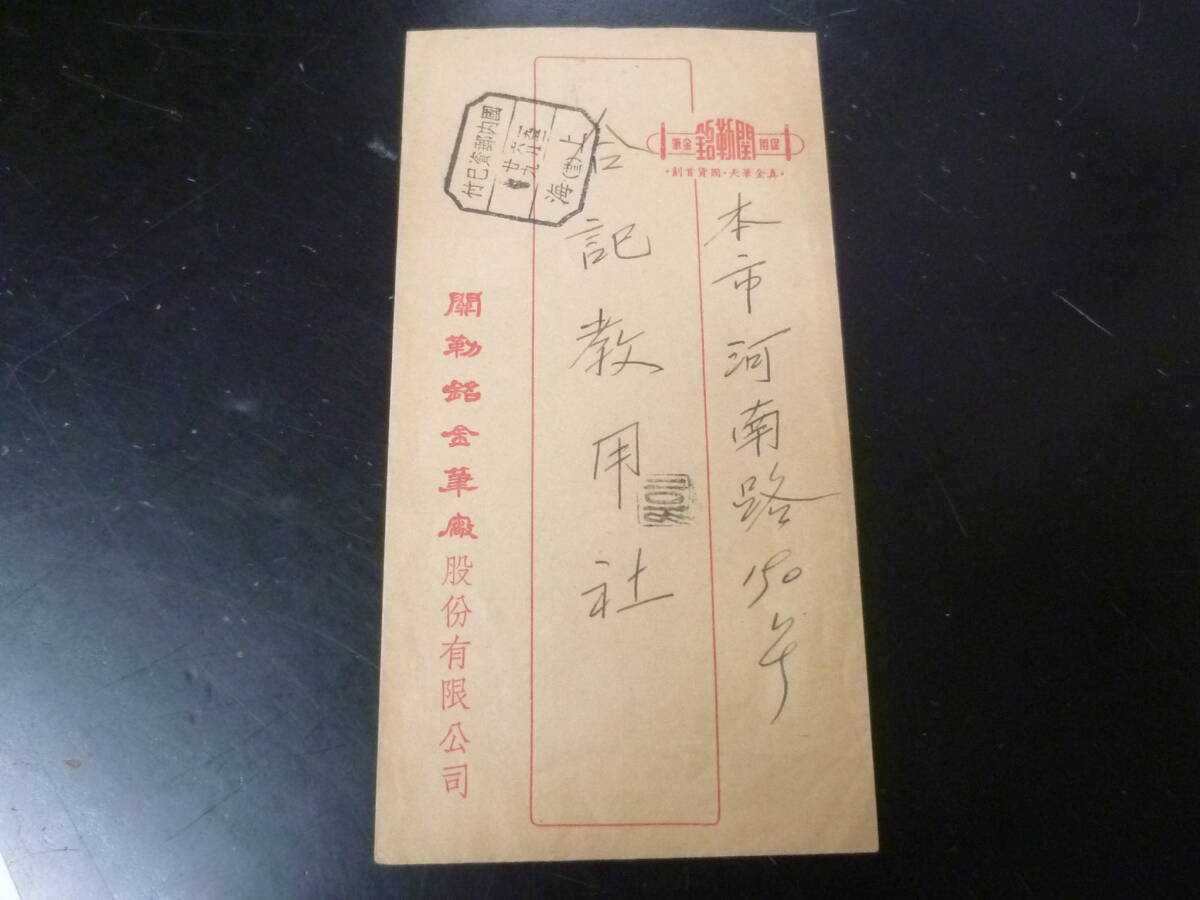 保用 關勒銘 金筆
·真金筆尖·國貨首創·
本市河南路150号
合記教用社
上海
六月
廿九
國內郵資已付
關勒銘金筆廠股份有限公司